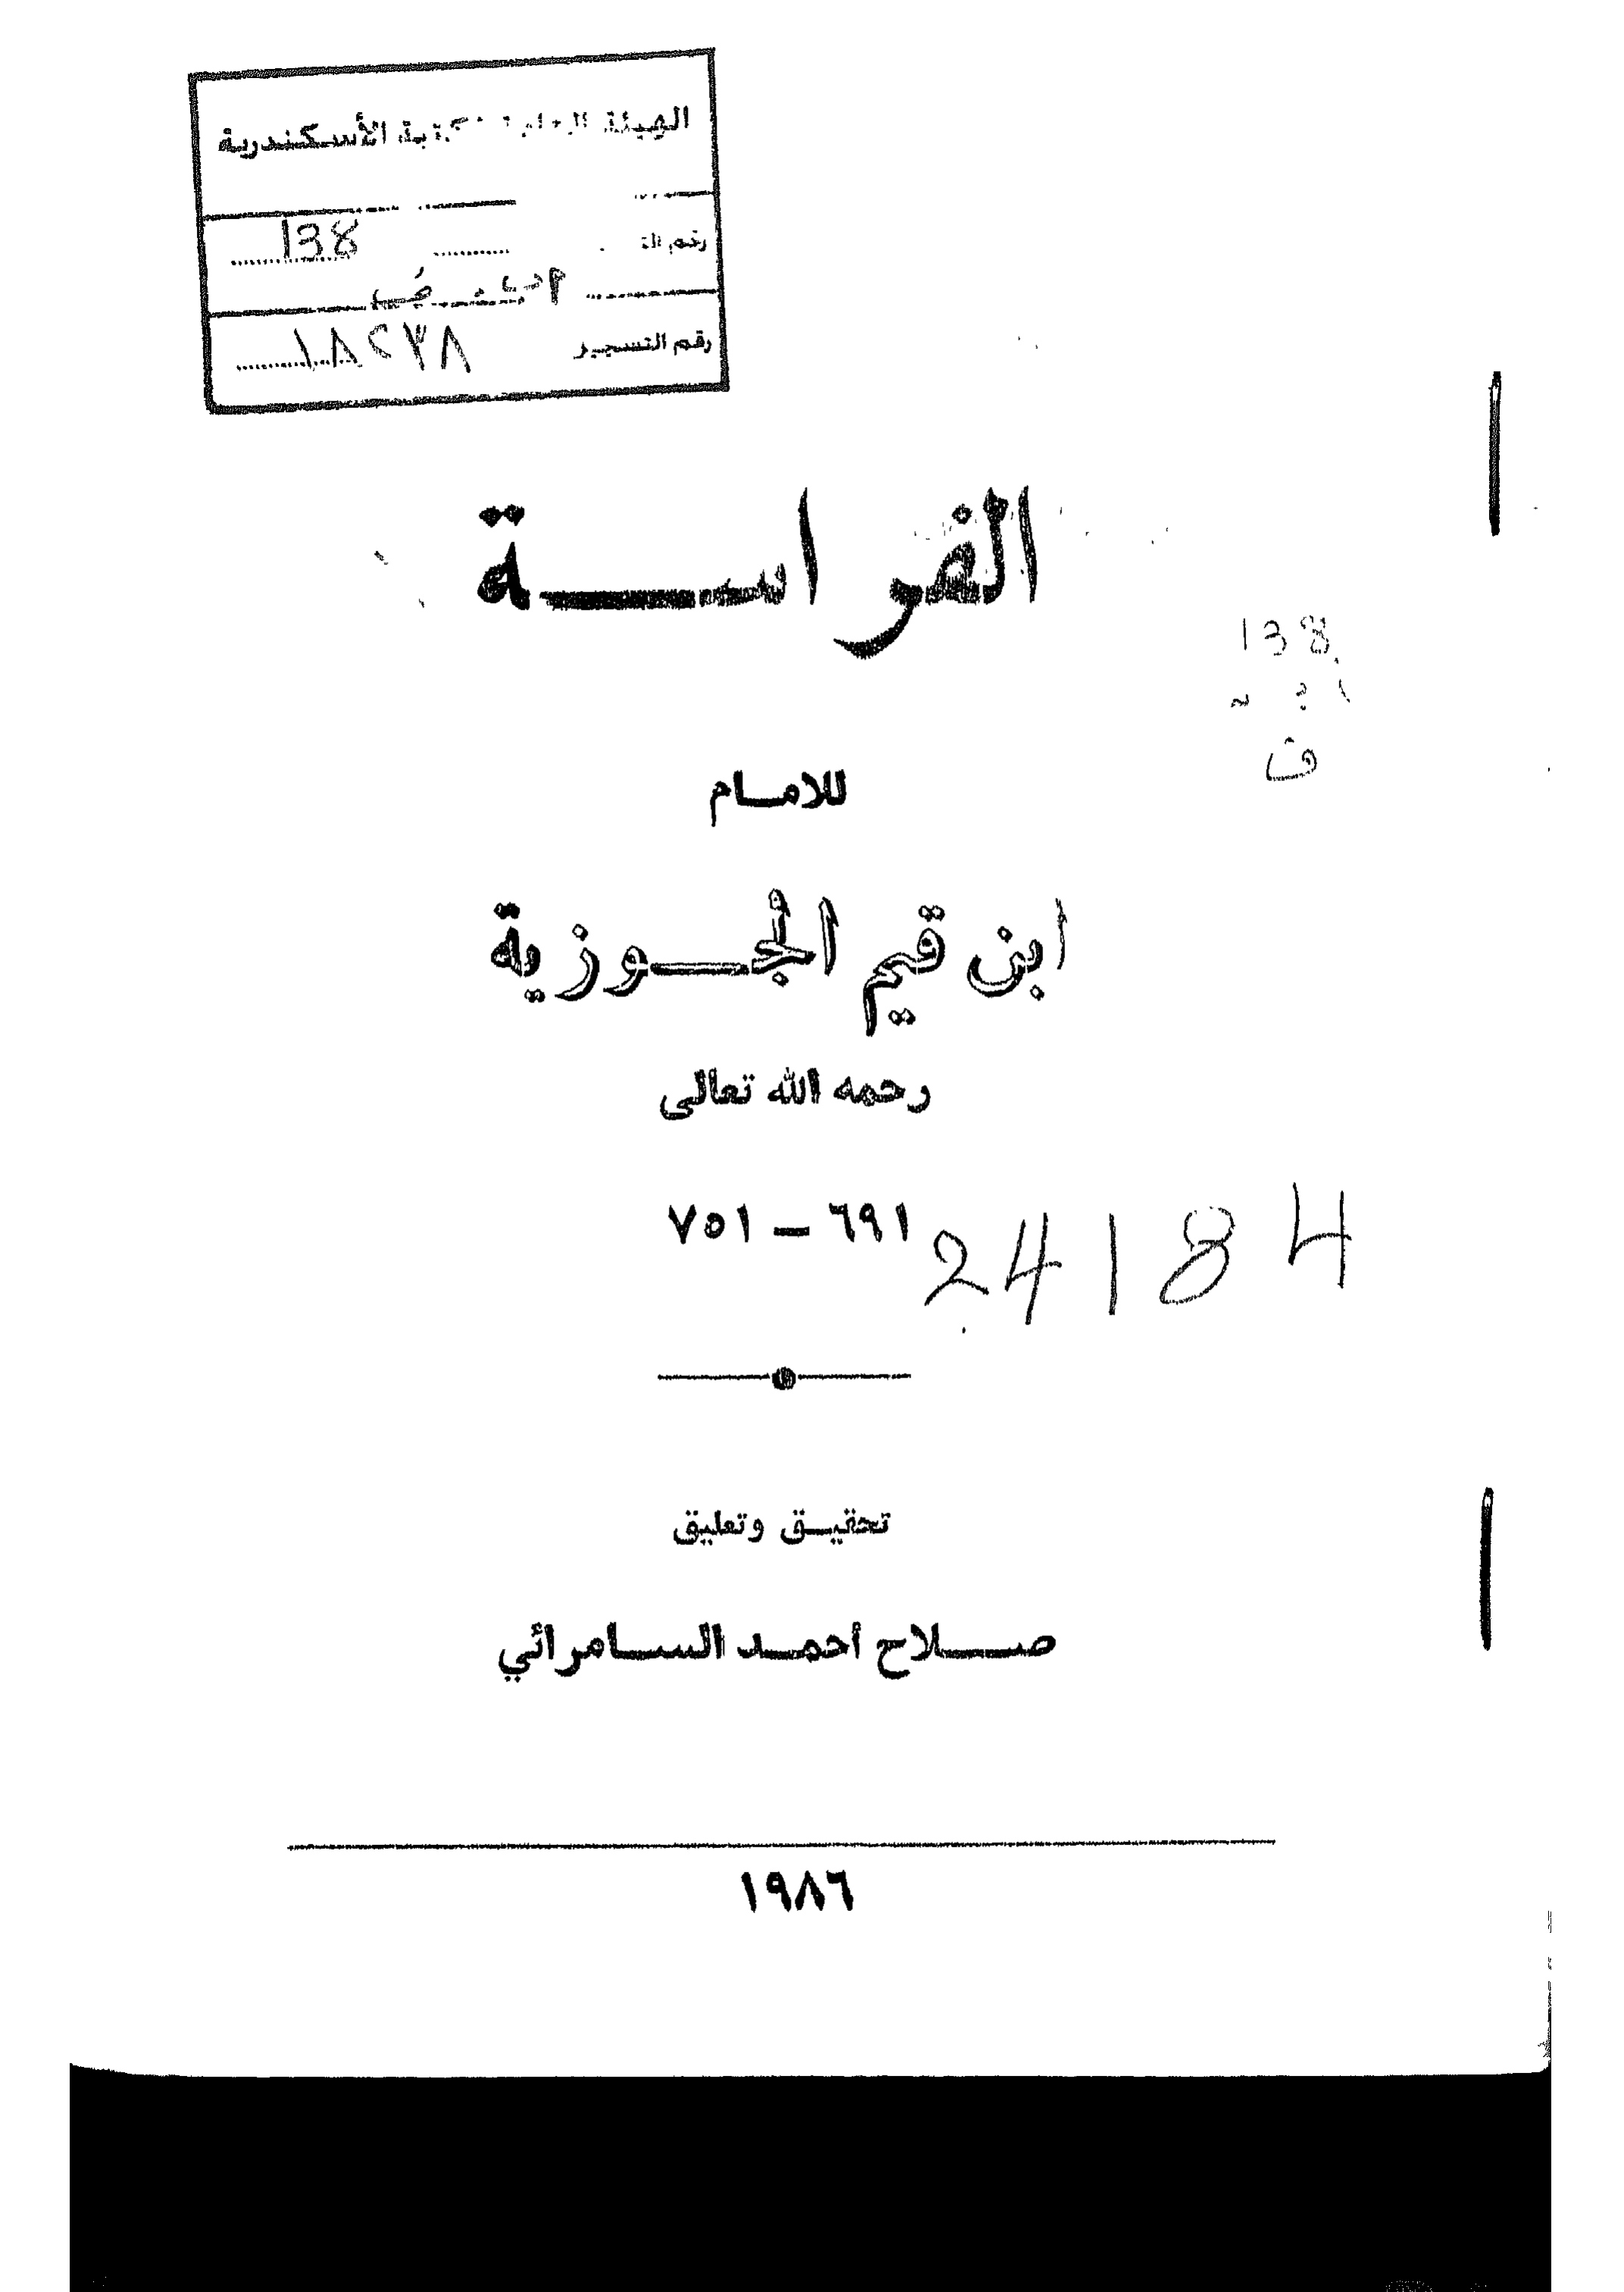 الهيئة العامة لمكتبة الأسكندرية
رقم
138
رقم التسجيل
١٨٢٣٨
الفراسة
138
ف
للامام
ابن قيم الجوزية
رحمه الله تعالى
٦٩١ – ٧٥١
24184
تحقيق وتعليق
صلاح أحمد السامرائي
١٩٨٦